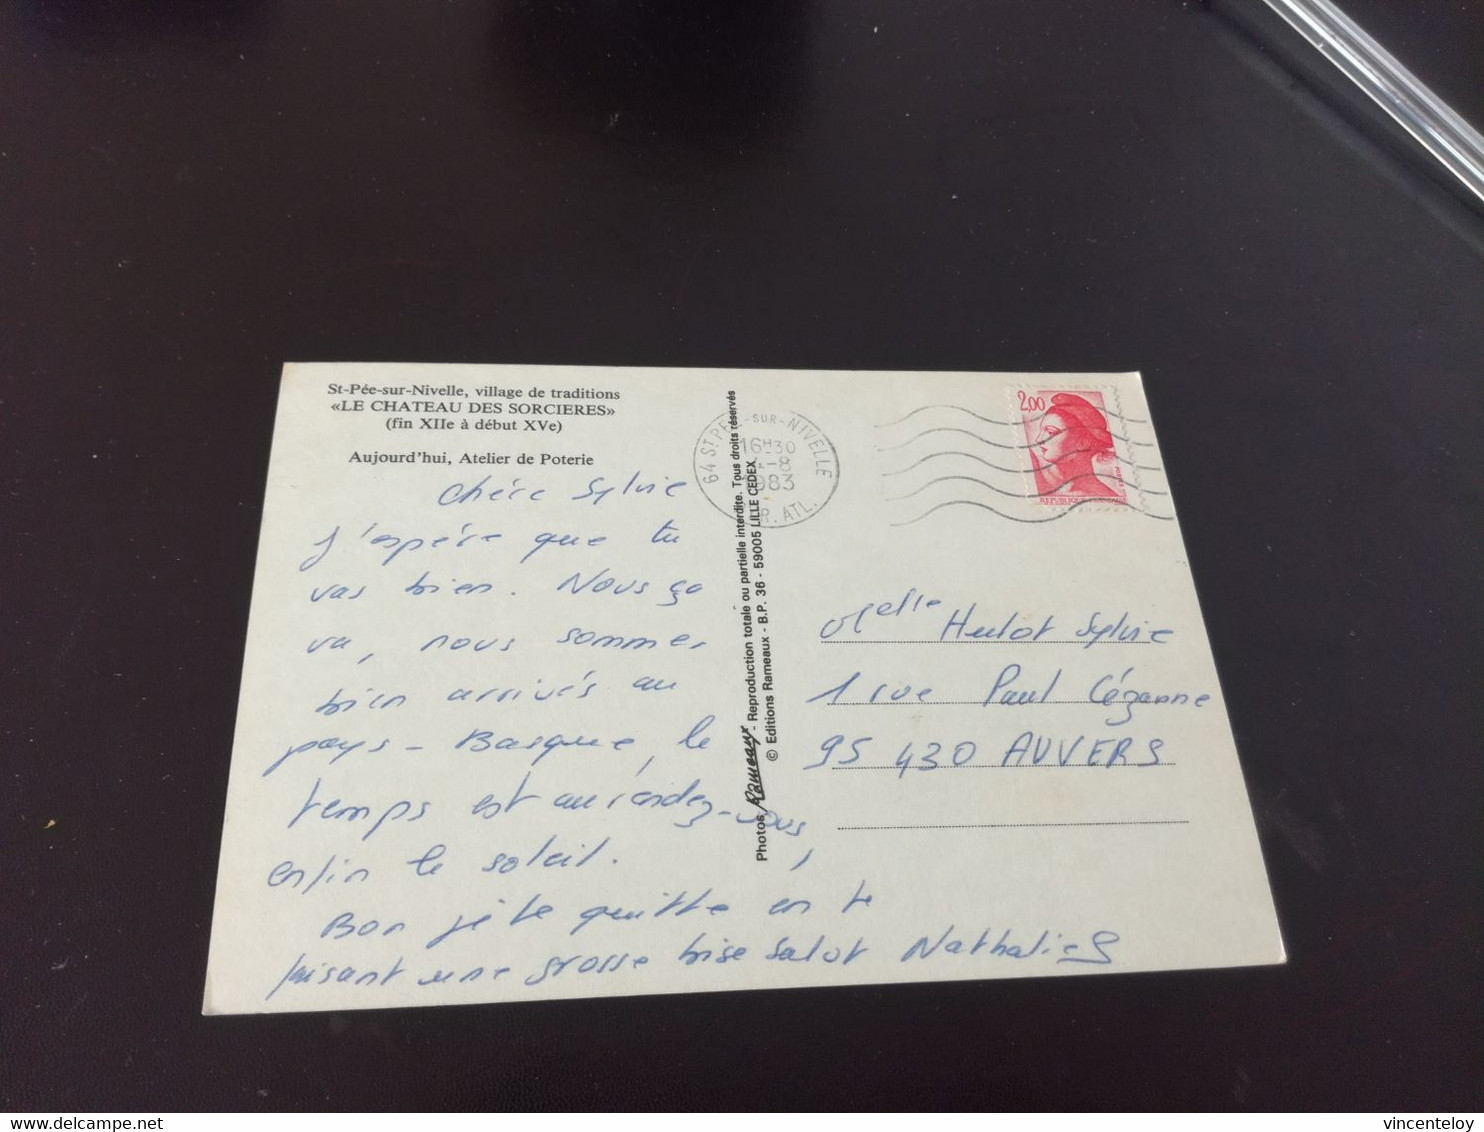 St-Pée-sur-Nivelle, village de traditions
«LE CHATEAU DES SORCIERES»
(fin XIIe à début XVe)
Aujourd'hui, Atelier de Poterie
Chére Sylvie
J'espére que tu
vas bien. Nous ça
va, nous sommes
bien arrivés au
pays-Basque, le
temps est au rendez-vous,
enfin le soleil.
Bon je te quitte en te
faisant une grosse bise Salut Nathalie
Photos Rameaux - Reproduction totale ou partielle interdite. Tous droits réservés
© Editions Rameaux - B.P. 36 - 59005 LILLE CEDEX
64 ST PEE-SUR-NIVELLE
16H30
-8
1983
ATL.
2,00
REPUBLIQUE FRANÇAISE
Melle Hulot Sylvie
1 rue Paul Cézanne
95 430 AUVERS
delcampe.net
vincenteloy